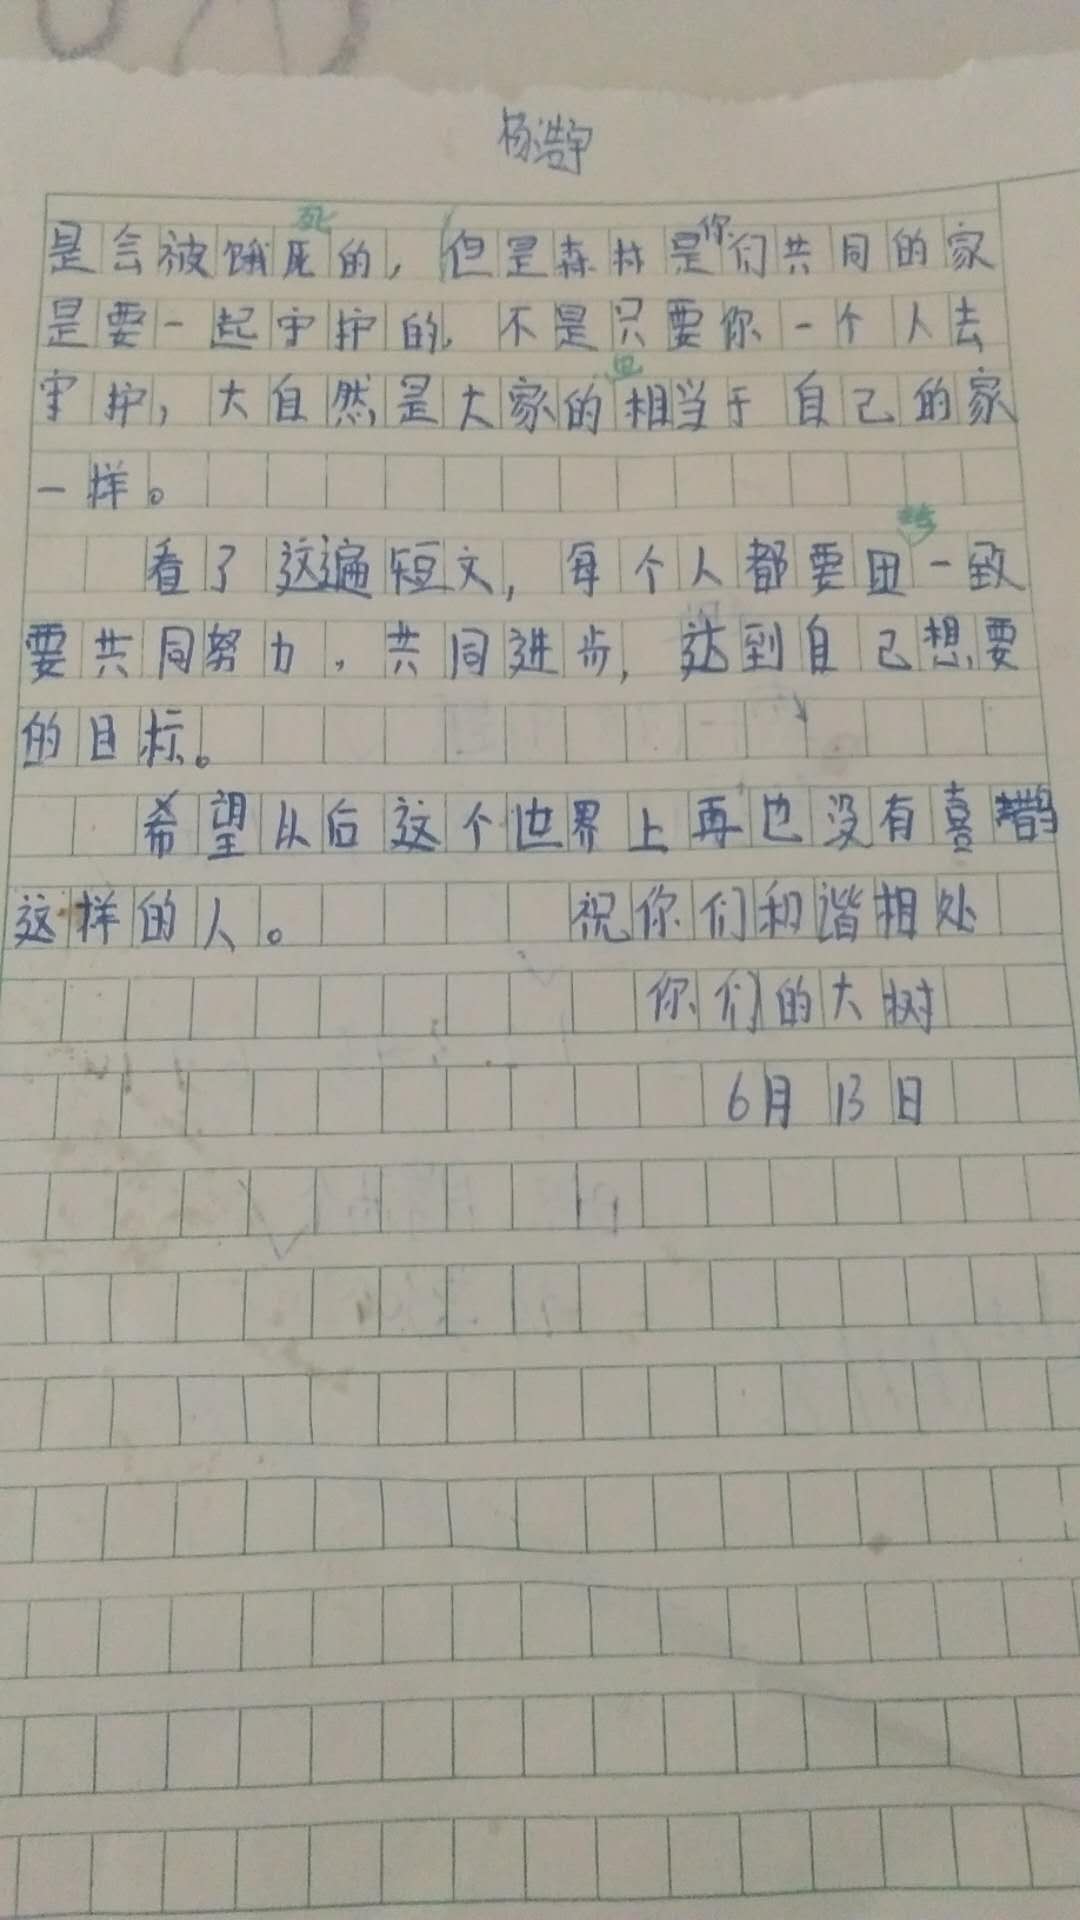 杨浩宇
死
是会被饿死的，但是森林是你们共同的家
是要一起守护的，不是只要你一个人去
守护，大自然是大家的相当于自己的家
一样。
看了这遍短文，每个人都要团一致
要共同努力，共同进步，达到自己想要
的目标。
希望从后这个世界上再也没有喜鹊
这样的人。祝你们和谐相处
你们的大树
6月13日